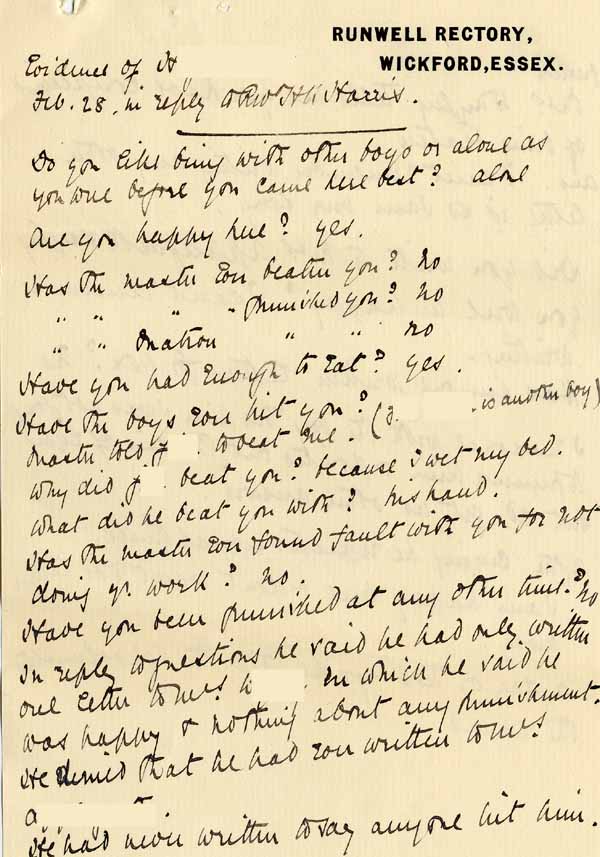 RUNWELL RECTORY,
WICKFORD, ESSEX.
Evidence of H
Feb. 28. in reply to Revd H K Harris.
Do you like being with other boys or alone as
you were before you came here best? alone
Are you happy here? yes.
Has the master ever beaten you? No
" " " " punished you? No
" " Matron " " no
Have you had enough to eat? yes.
Have the boys ever hit you?
Master told J to beat me. (J. is another boy)
Why did J beat you? because I wet my bed.
What did he beat you with? his hand.
Has the master ever found fault with you for not
doing yr. work? no.
Have you been punished at any other time? No
In reply to questions he said he had only written
one letter to Mrs H in which he said he
was happy & nothing about any punishment.
He denied that he had ever written to Mrs
a
He had never written to say anyone hit him.